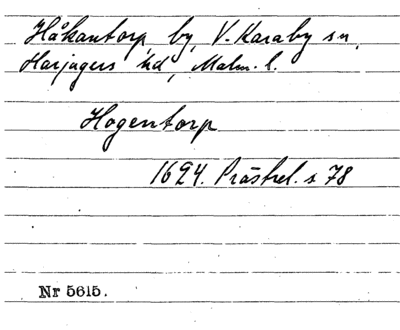 Håkantorp by, V. Karaby sn,
Harjagers hd, Malm. l.
Hogentorp
1624. Prästrel. s 78
Nr 5615.